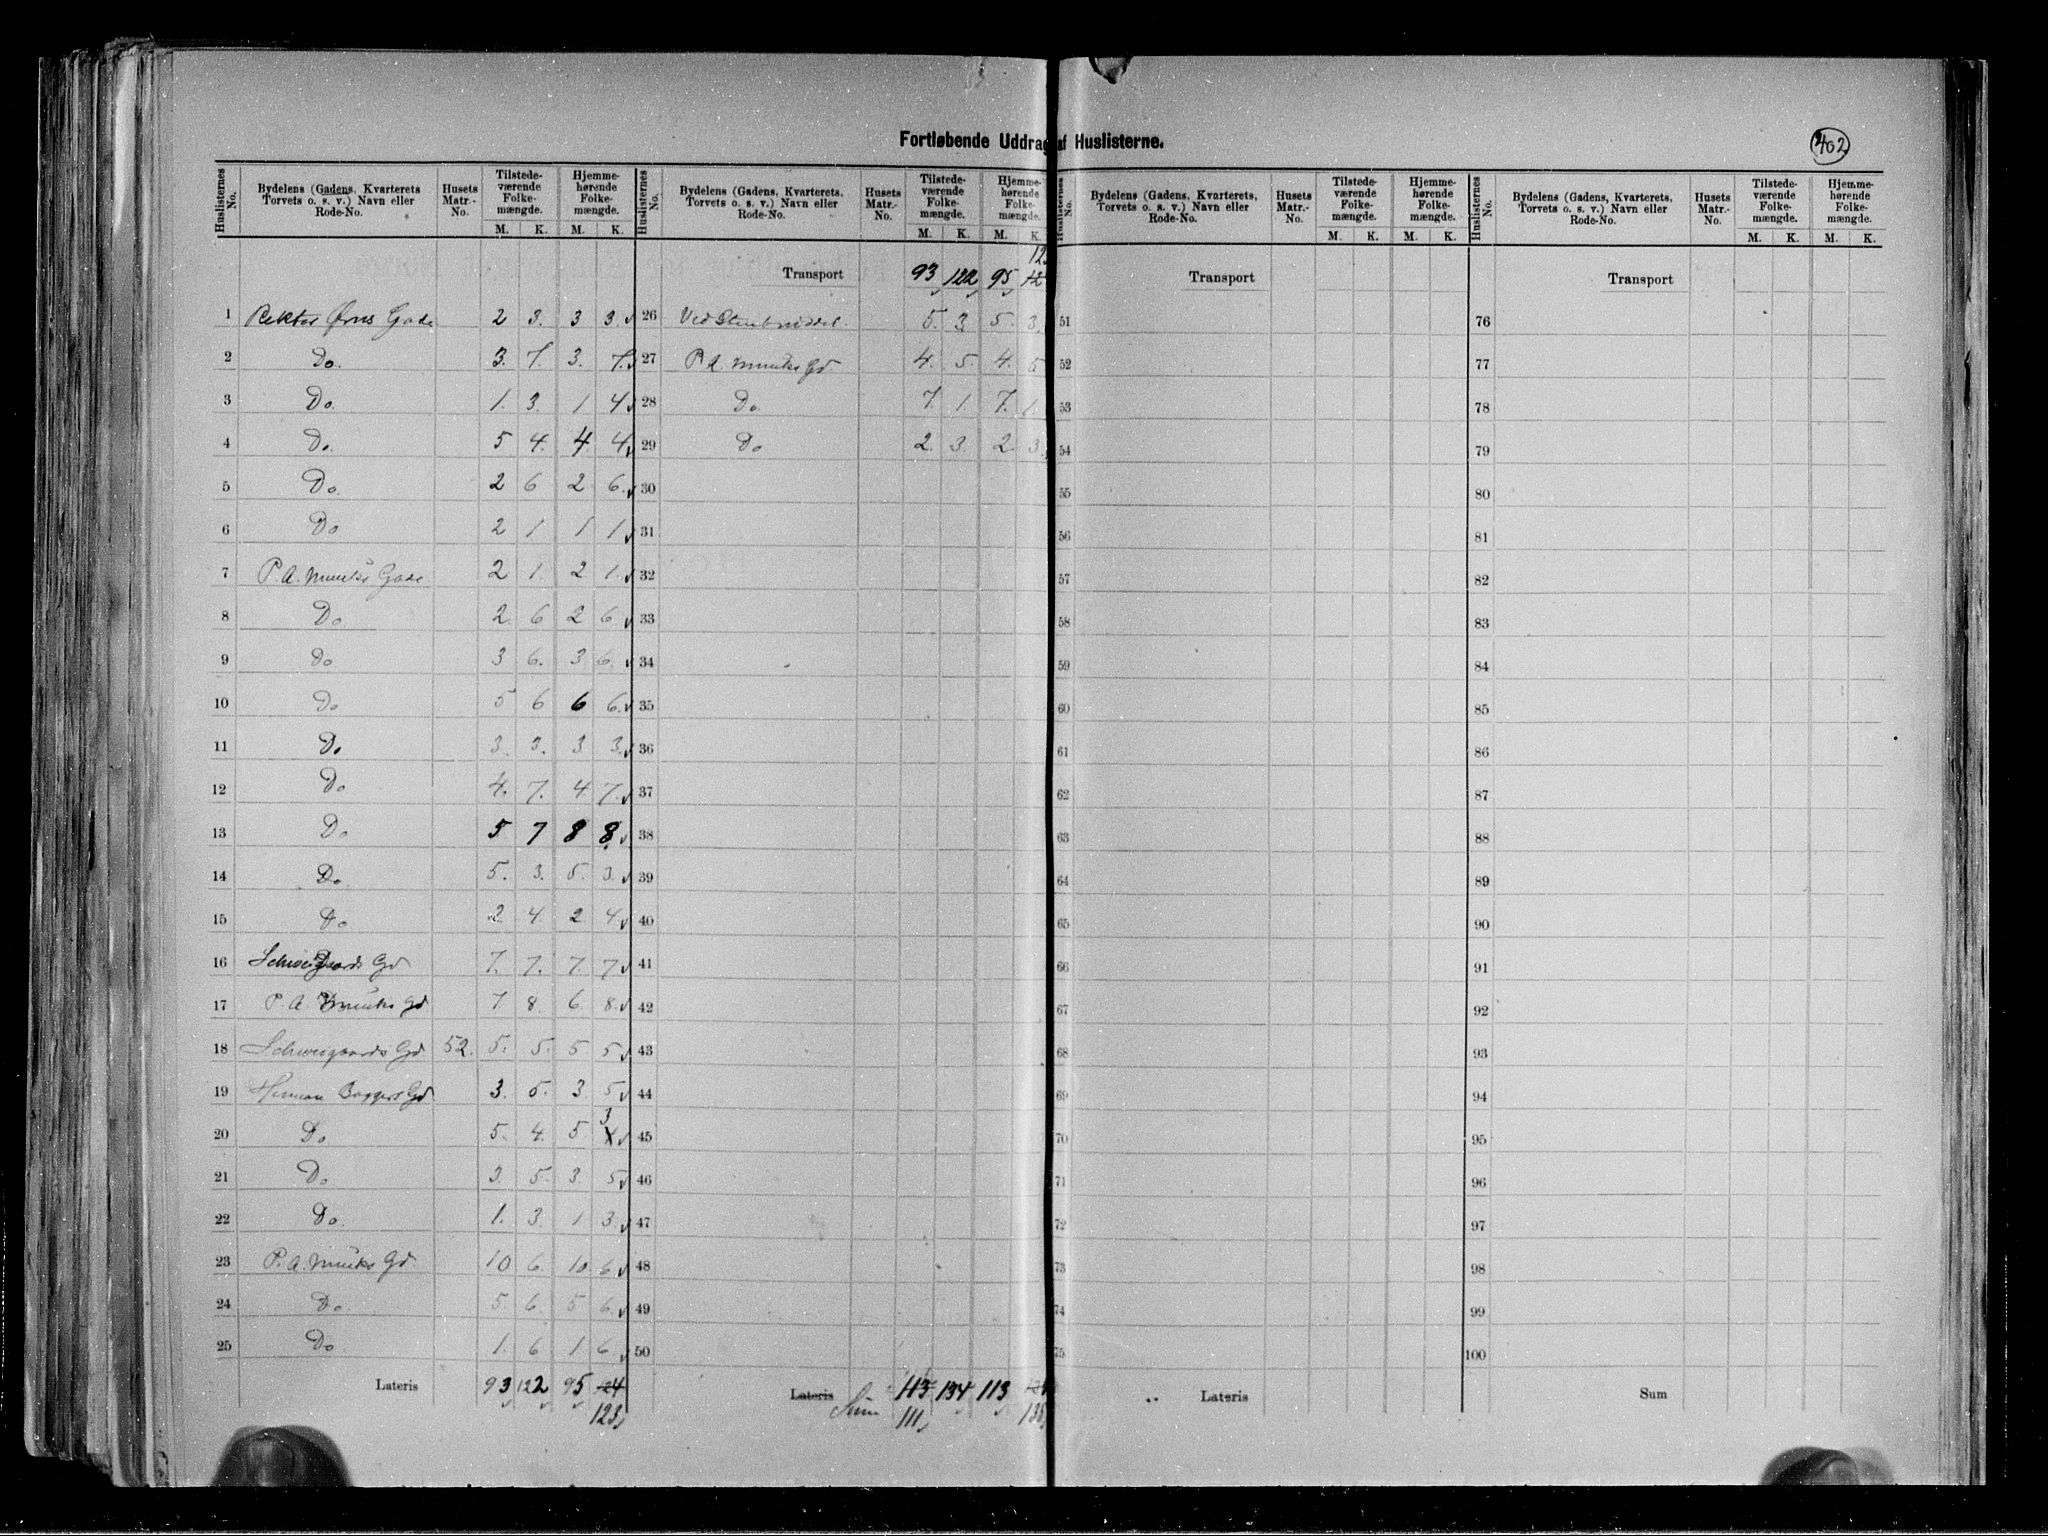 Fortløbende Uddrag af Huslisterne.
402
Huslisternes No. | Bydelens (Gadens, Kvarterets Torvets o. s. v.) Navn eller Rode-No. | Husets Matr.-No. | Tilstedeværende Folkemængde. M. K. | Hjemmehørende Folkemængde. M. K.
1 Rektor Ørns Gade 2 3. 3 3.
2 Do. 3. 7. 3. 7.
3 Do. 1. 3. 1 4
4 Do. 5 4. 4. 4
5 Do. 2 6 2 6.
6 Do 2 1 1 1
7 P. A. Munks Gade 2 1. 2 1.
8 Do 2. 6 2 6.
9 Do 3 6. 3 6.
10 Do 5 6 6 6.
11 Do 3. 3. 3 3.
12 Do 4. 7. 4 7.
13 Do 5 7 8 8.
14 Do. 5. 3. 5. 3.
15 Do 2 4. 2 4
16 Schweigaards Gd 7. 7. 7. 7
17 P. A. Munks Gd 7 8 6. 8.
18 Schweigaards Gd 52. 5. 5. 5 5
19 Herman Baggers Gd 3. 5. 3 5
20 Do 5. 4. 5 4 3
21 Do 3. 5. 3. 5
22 Do. 1. 3. 1 3.
23 P. A. Munks Gd 10 6. 10 6
24 Do. 5. 6. 5 6.
25 Do. 1. 6 1 6
Lateris 93 122 95 124
123
Huslisternes No. | Bydelens (Gadens, Kvarterets, Torvets o. s. v.) Navn eller Rode-No. | Husets Matr.-No. | Tilstedeværende Folkemængde. M. K. | Hjemmehørende Folkemængde. M. K.
Transport 93 122 95 12
26 5. 3 5. 3.
27 P. A. Munks Gd 4. 5. 4. 5
28 Do 7. 1. 7. 1.
29 Do 2. 3. 2. 3
30
31
32
33
34
35
36
37
38
39
40
41
42
43
44
45
46
47
48
49
50
Lateris 113 134 113
Sum 111
Huslisternes No. | Bydelens (Gadens, Kvarterets, Torvets o. s. v.) Navn eller Rode-No. | Husets Matr.-No. | Tilstedeværende Folkemængde. M. K. | Hjemmehørende Folkemængde. M. K.
Transport
51
52
53
54
55
56
57
58
59
60
61
62
63
64
65
66
67
68
69
70
71
72
73
74
75
Lateris
Huslisternes No. | Bydelens (Gadens, Kvarterets, Torvets o. s. v.) Navn eller Rode-No. | Husets Matr.-No. | Tilstedeværende Folkemængde. M. K. | Hjemmehørende Folkemængde. M. K.
Transport
76
77
78
79
80
81
82
83
84
85
86
87
88
89
90
91
92
93
94
95
96
97
98
99
100
Sum